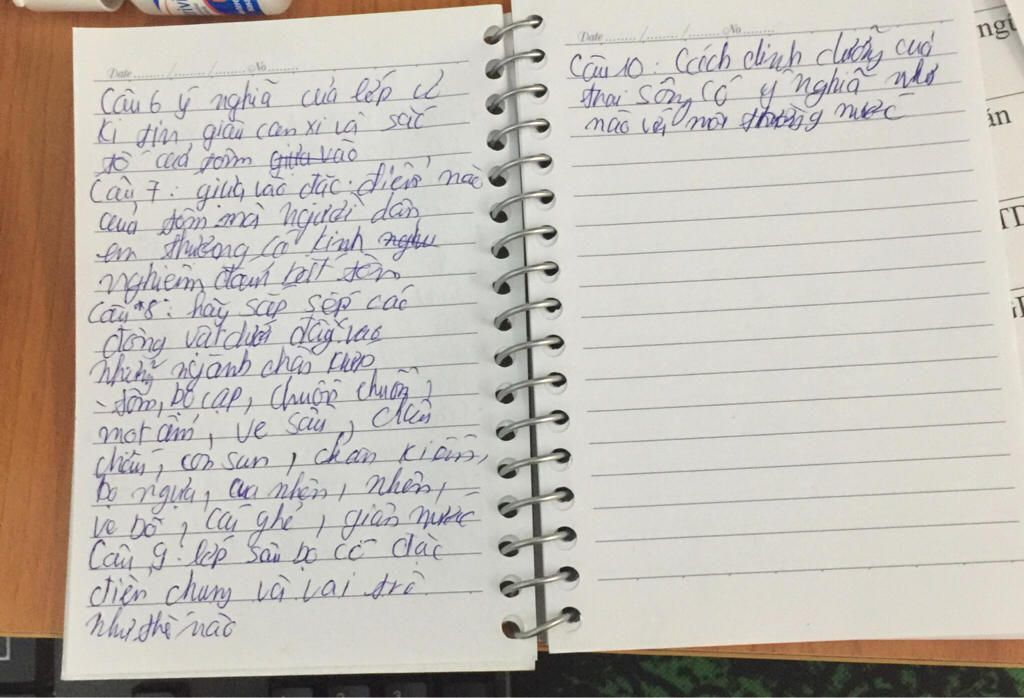 Date ....... / ....... / ....... No .......
Câu 6 ý nghĩa của lớp vỏ
ki tin giàu can xi và sắc
tố của tôm giựa vào
Câu 7: giựa vào đặc điểm nào
của tôm mà người dân
em thường có kinh nghu
nghiệm đánh bắt tôm
Câu 8: hãy sắp sếp các
động vật dưới đây vào
những ngành chân khớp
- tôm, bò cạp, chuồn chuồn,
mọt ẩm, ve sầu, châu
chấu, con sun, chân kiếm,
bọ ngựa, cua nhện, nhện,
ve bò, cái ghẻ, gián nước
Câu 9: lớp sâu bọ có đặc
điển chung và vai trò
như thế nào
Date ....... / ....... / ....... No .......
Câu 10: Cách dinh dưỡng của
trai sông có ý nghĩa như
nào với môi trường nước
án